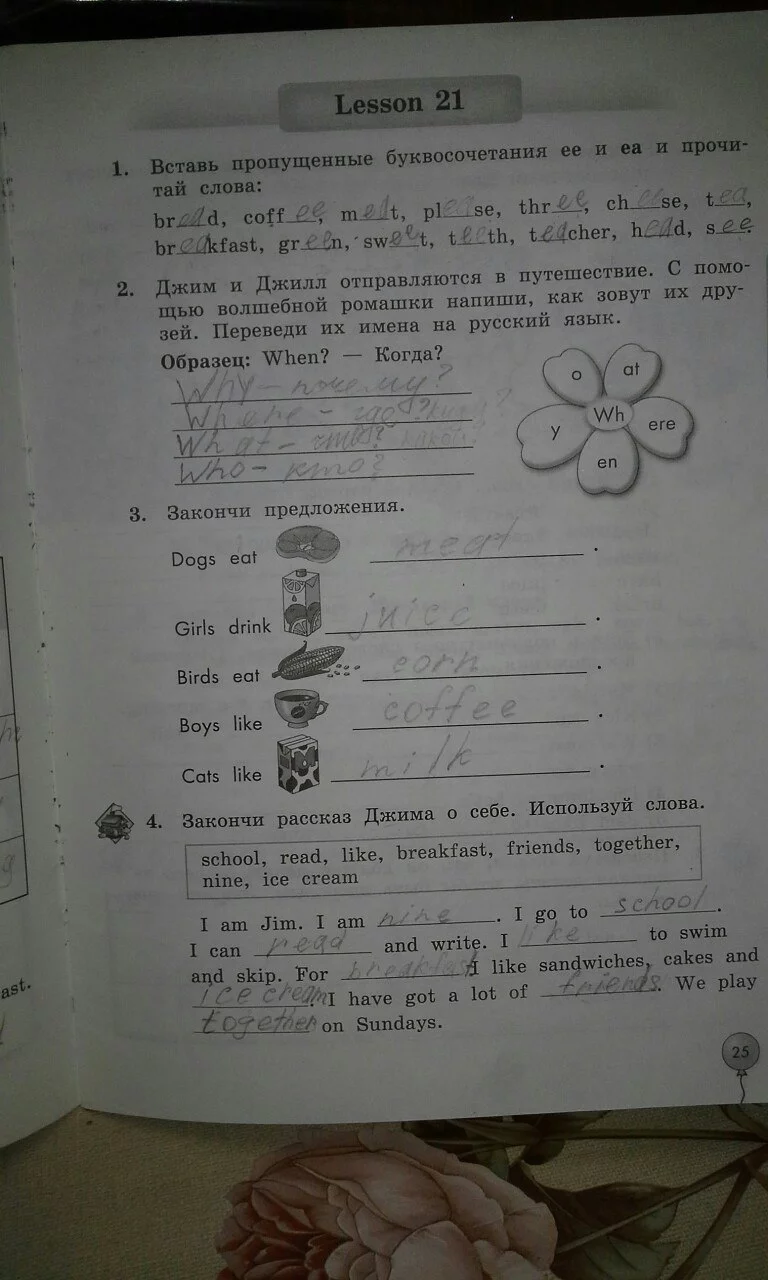 Lesson 21
1. Вставь пропущенные буквосочетания ee и ea и прочи-
тай слова:
bread, coffee, meat, please, three, cheese, tea,
breakfast, green, sweet, teeth, teacher, head, see.
2. Джим и Джилл отправляются в путешествие. С помо-
щью волшебной ромашки напиши, как зовут их дру-
зей. Переведи их имена на русский язык.
Образец: When? — Когда?
Why - почему?
Where - где?
What - что?
Who - кто?
o at
Wh
y ere
en
3. Закончи предложения.
Dogs eat meat.
Girls drink juice.
Birds eat corn.
Boys like coffee.
Cats like milk.
4. Закончи рассказ Джима о себе. Используй слова.
school, read, like, breakfast, friends, together,
nine, ice cream
I am Jim. I am nine. I go to school.
I can read and write. I like to swim
and skip. For breakfast I like sandwiches, cakes and
ice cream. I have got a lot of friends. We play
together on Sundays.
25
ast.